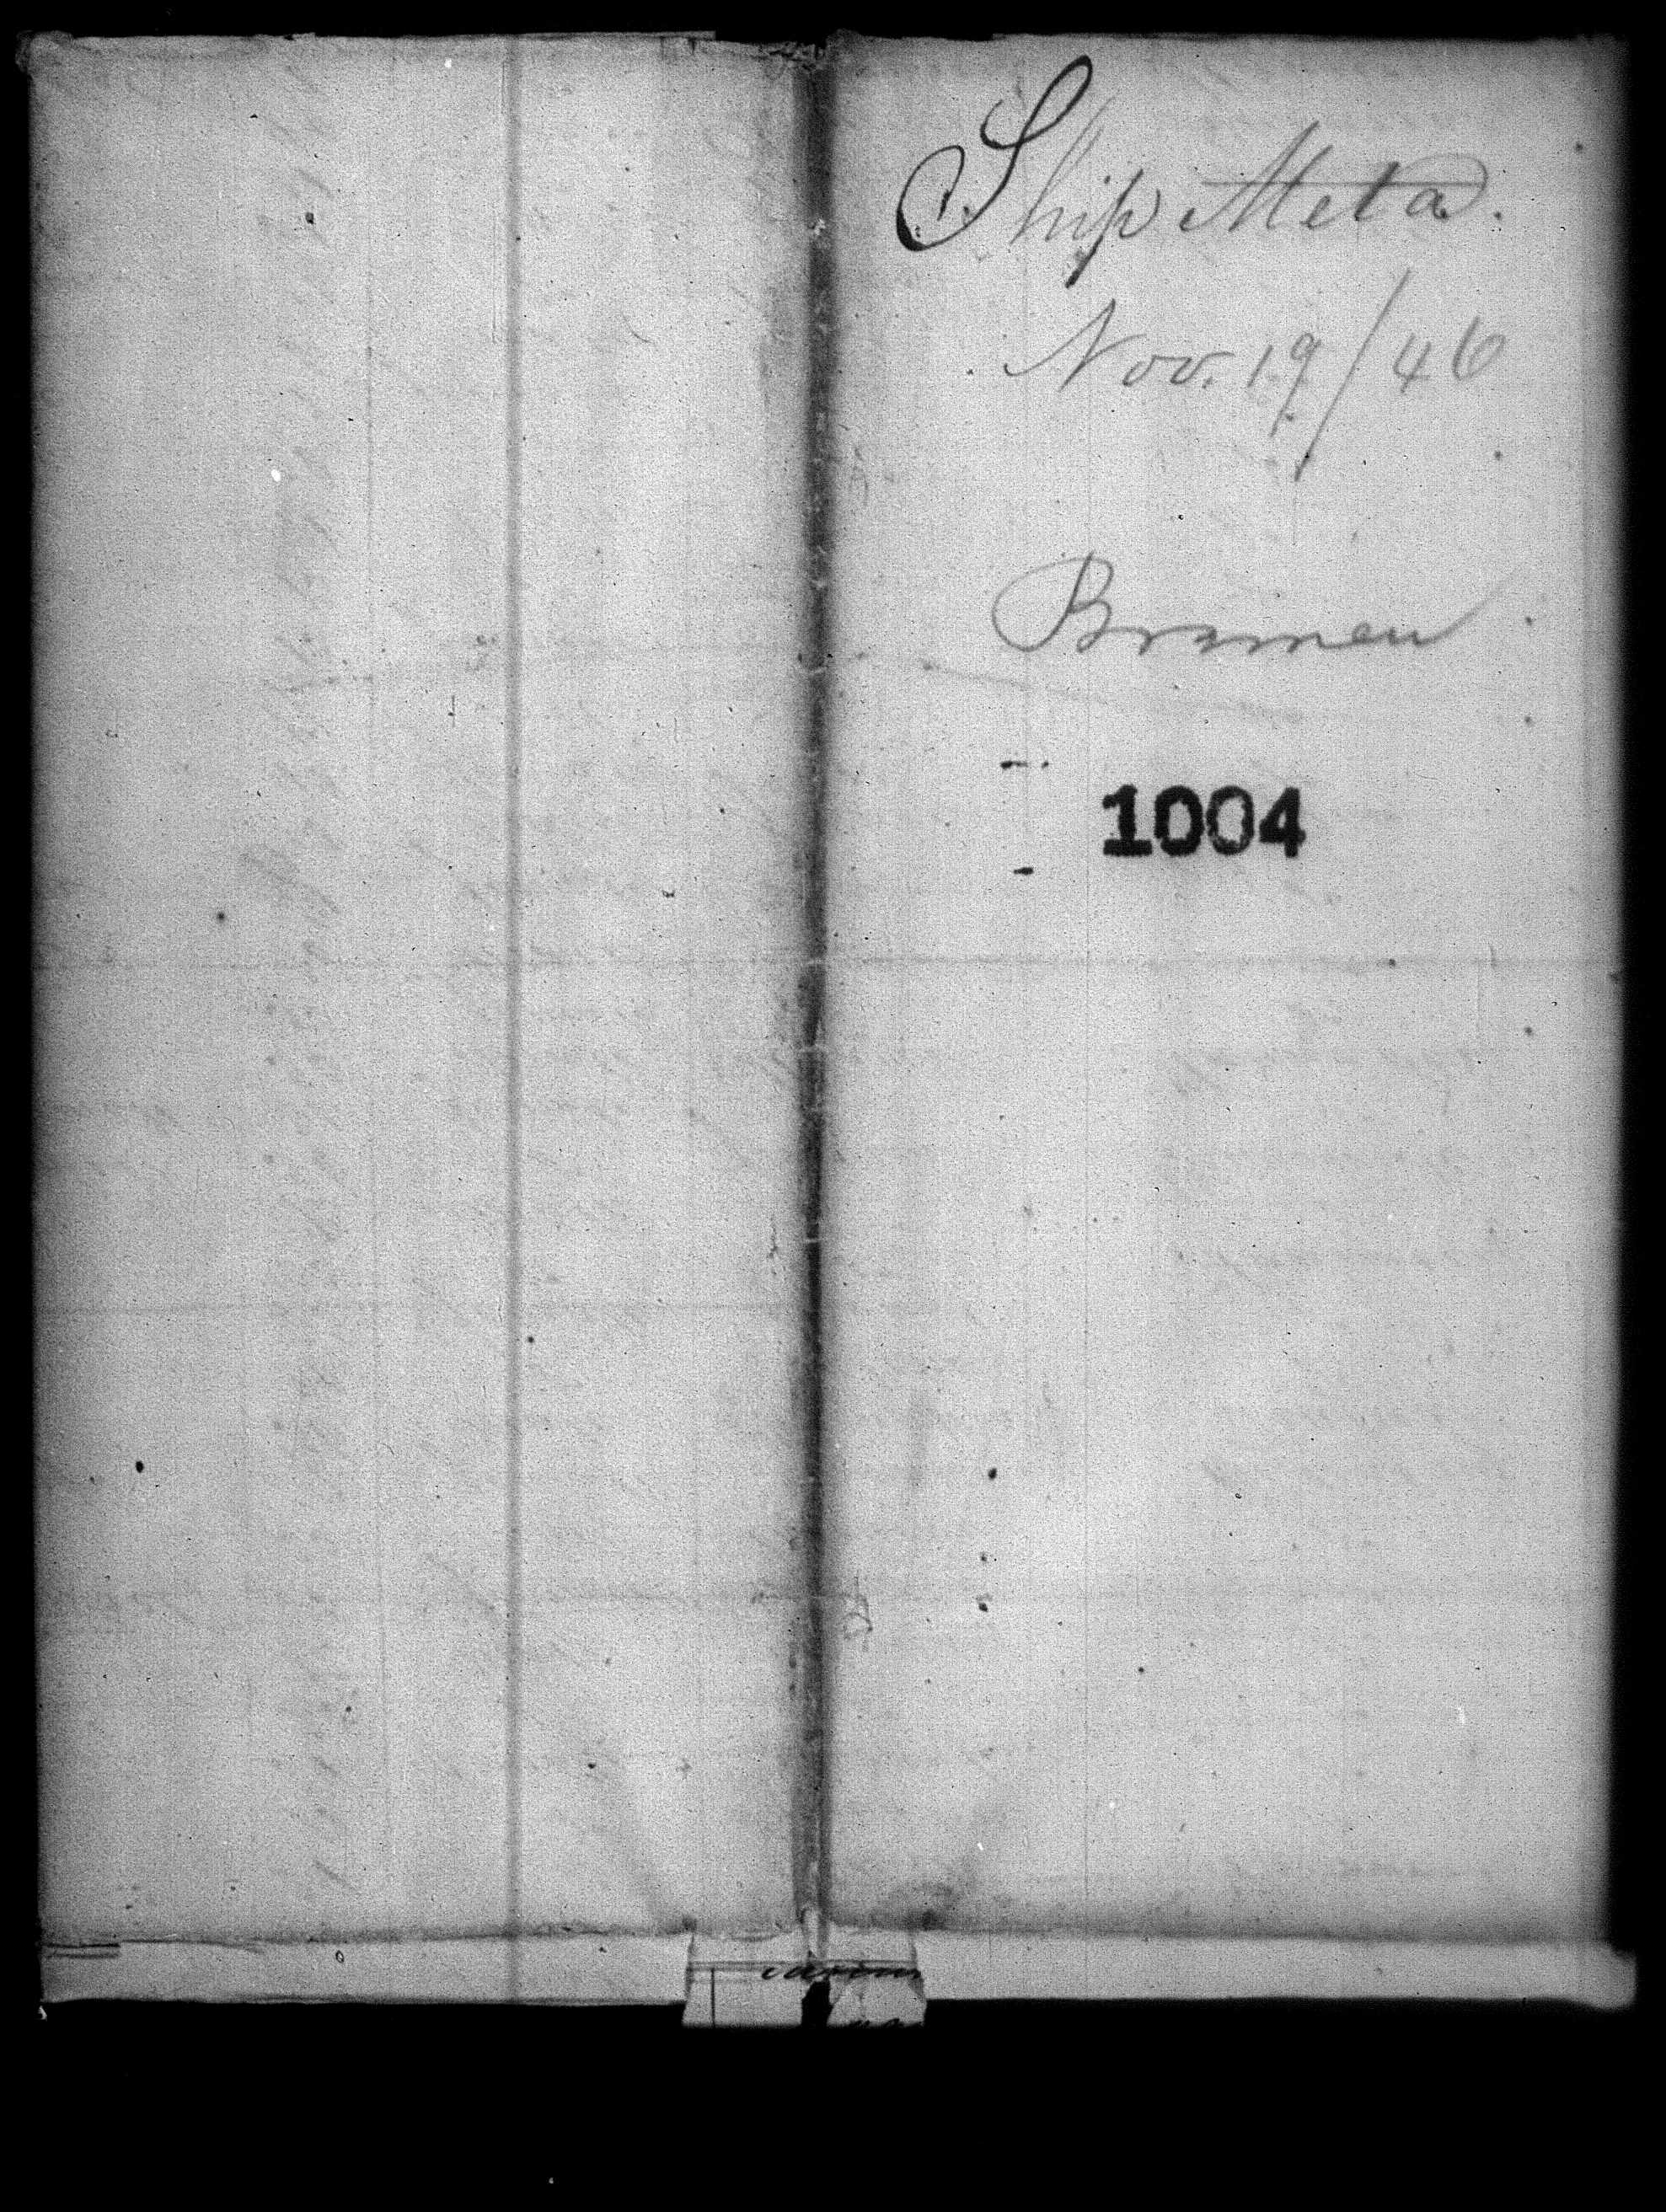 Ship Meta.
Nov. 19/46
Bremen
1004